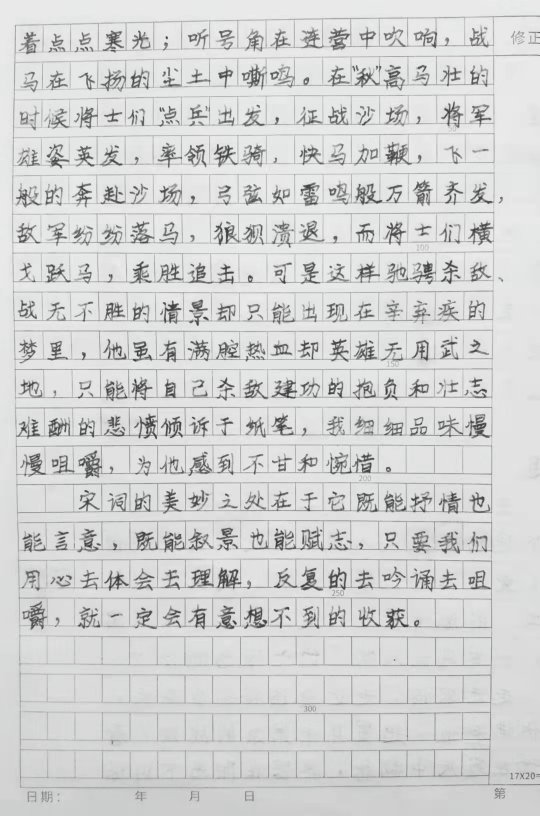 着点点寒光；听号角在连营中吹响，战
修正
马在飞扬的尘土中嘶鸣。在“秋”高马壮的
时候将士们“点兵”出发，征战沙场，将军
雄姿英发，率领铁骑，快马加鞭，飞一
般的奔赴沙场，弓弦如雷鸣般万箭齐发，
敌军纷纷落马，狼狈溃退，而将士们横
100
戈跃马，乘胜追击。可是这样驰骋杀敌、
战无不胜的情景却只能出现在辛弃疾的
梦里，他虽有满腔热血却英雄无用武之
150
地，只能将自己杀敌建功的抱负和壮志
难酬的悲愤倾诉于纸笔，我细细品味慢
慢咀嚼，为他感到不甘和惋惜。
200
宋词的美妙之处在于它既能抒情也
能言意，既能叙景也能赋志，只要我们
用心去体会去理解，反复的去吟诵去咀
250
嚼，就一定会有意想不到的收获。
300
17X20=
日期： 年 月 日 第